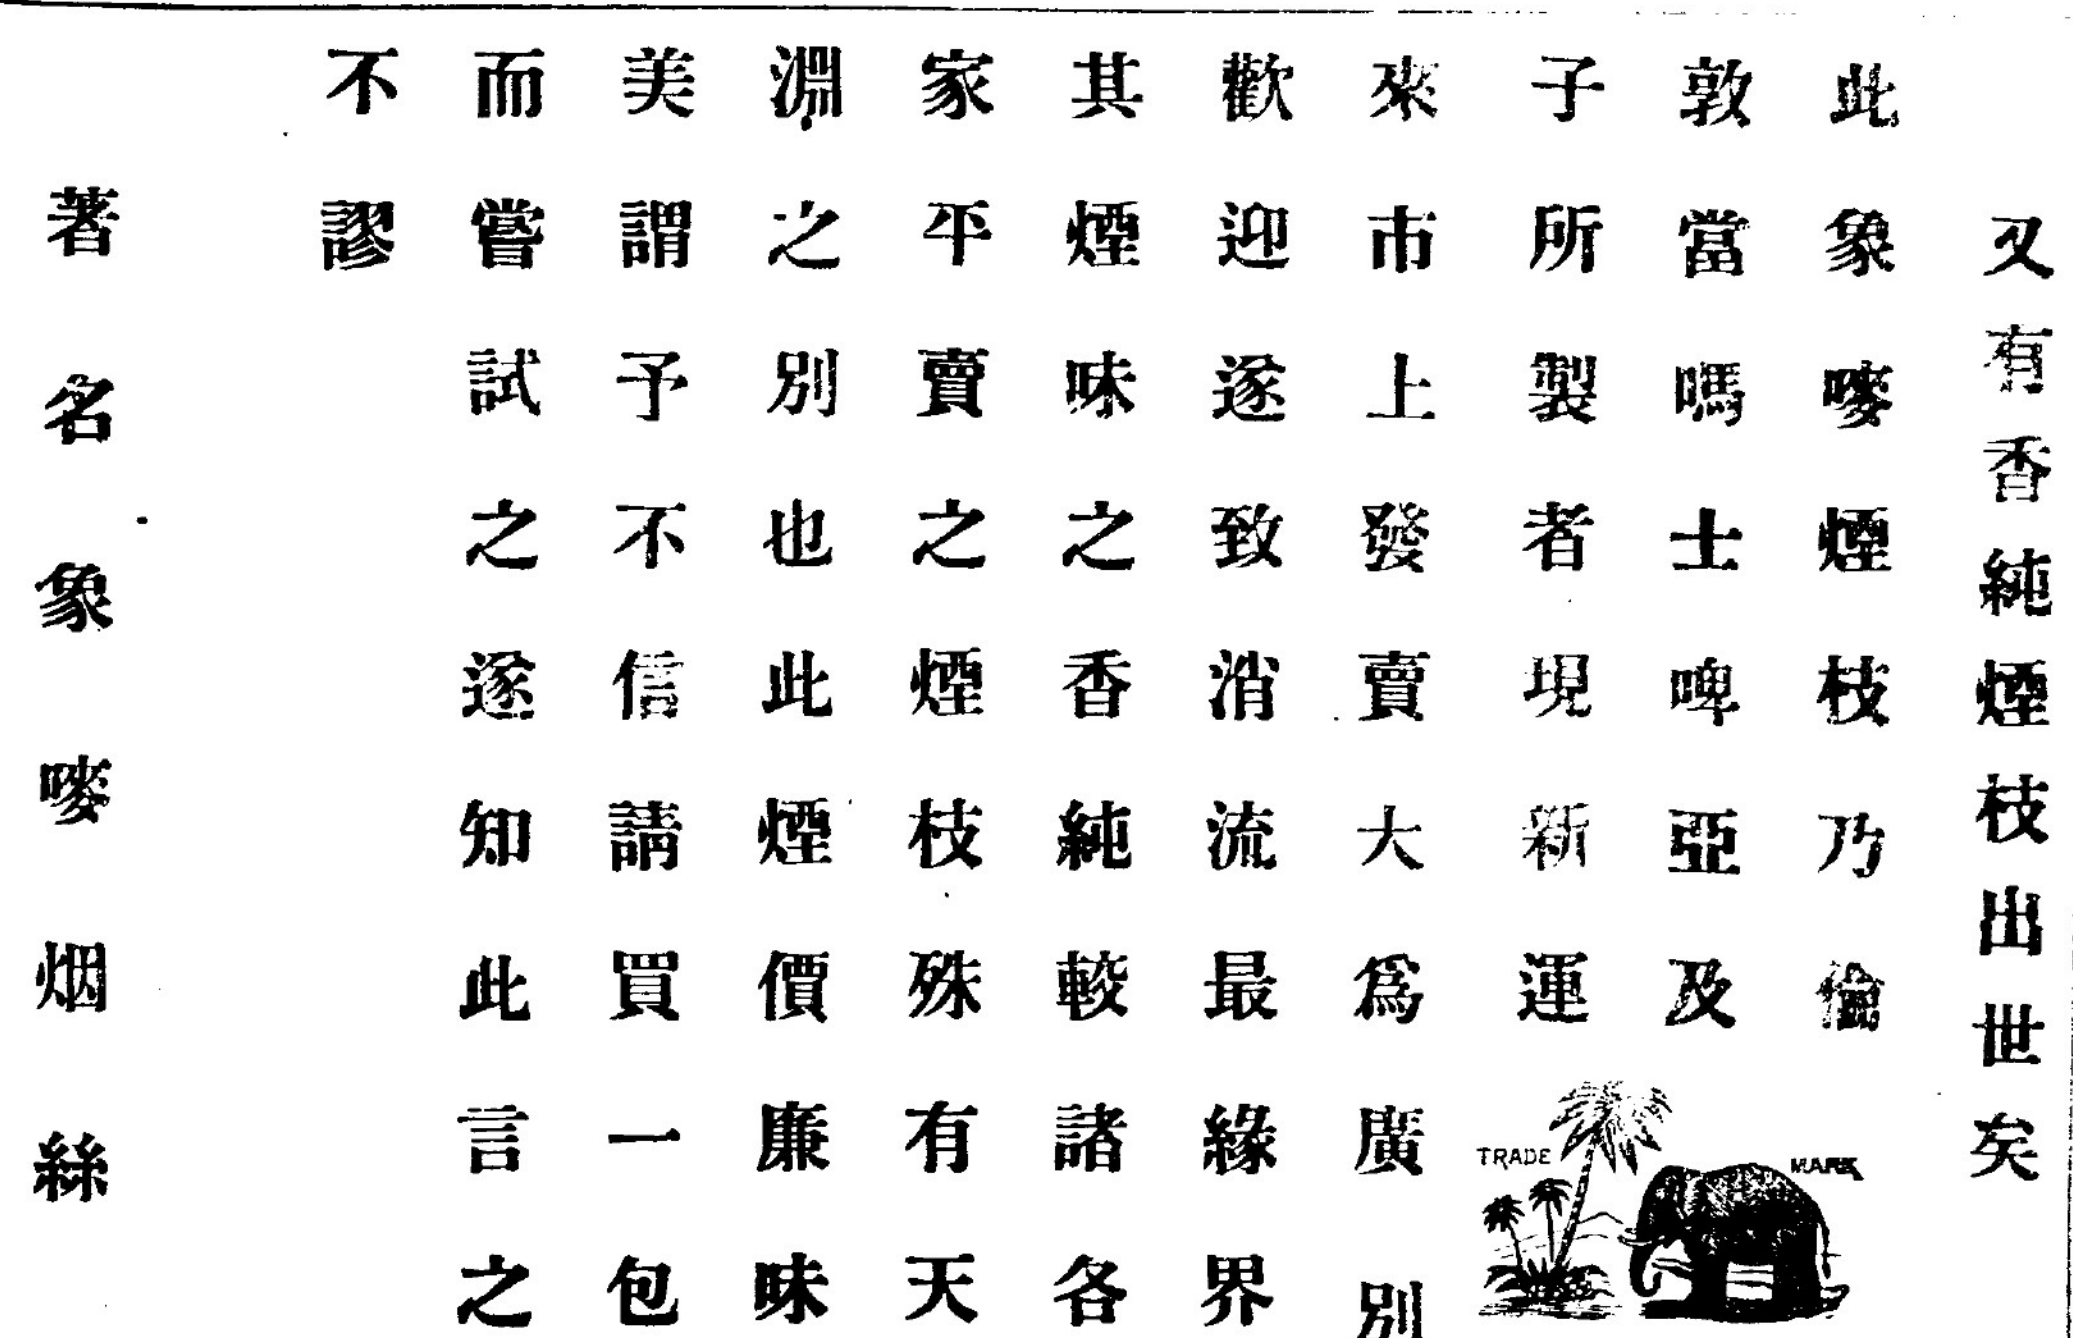 又有香純煙枝出世矣
此象嘜煙枝乃倫
敦當嗎士啤亞及
子所製者現新運
來市上發賣大爲廣別
歡迎遂致消流最緣界
其煙味之香純較諸各
家平賣之煙枝殊有天
淵之別也此煙價廉味
美謂予不信請買一包
而嘗試之遂知此言之
不謬
著名象嘜烟絲
TRADE MARK